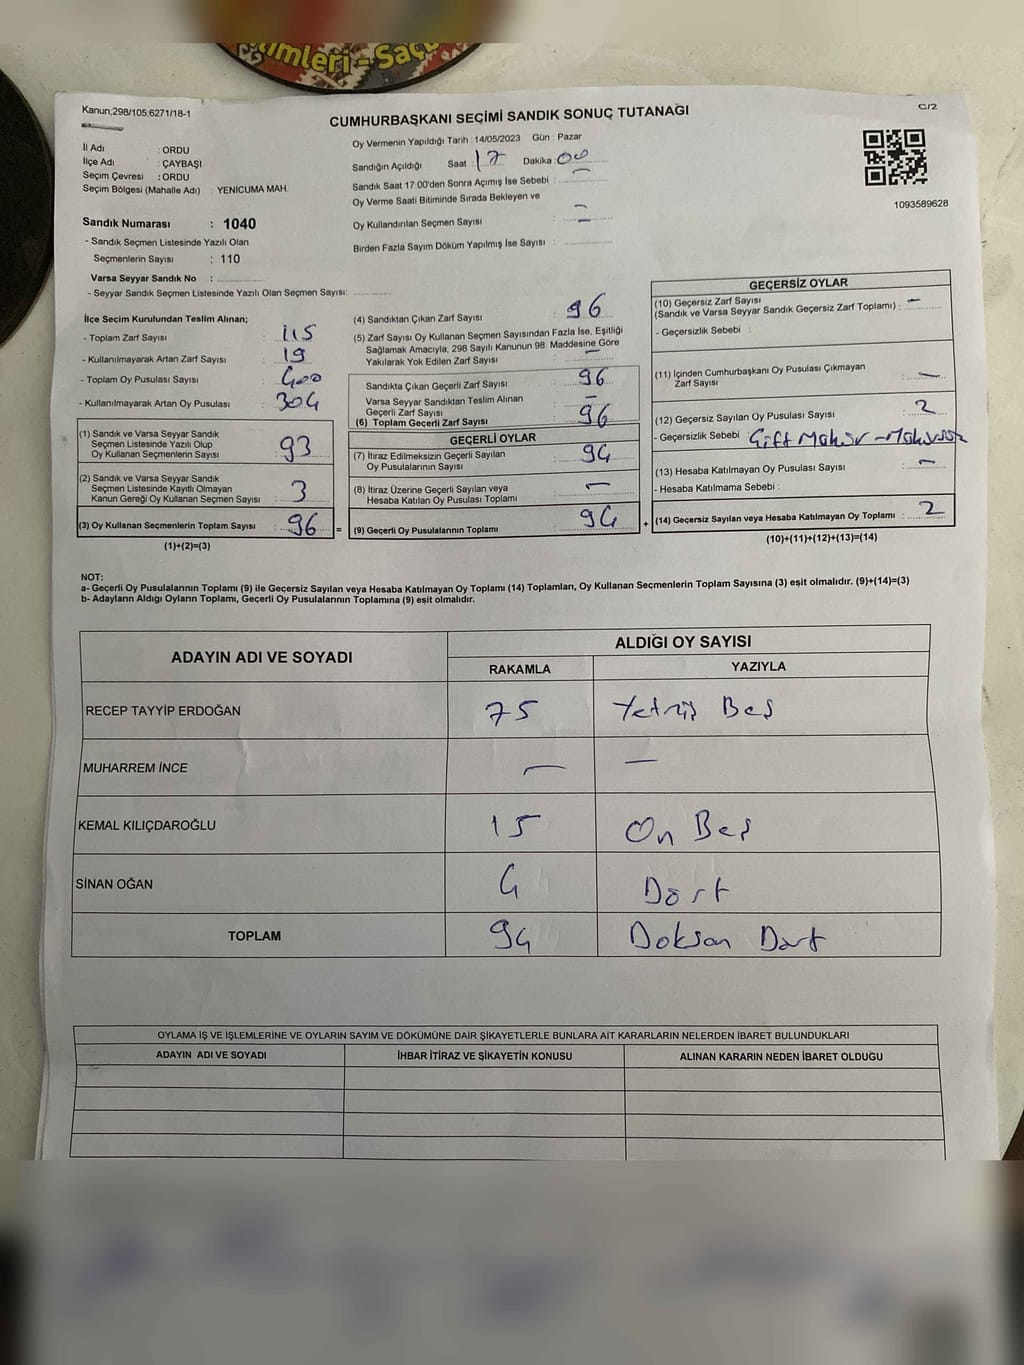 imleri - Saç
Kanun;298/105,6271/18-1
CUMHURBAŞKANI SEÇİMİ SANDIK SONUÇ TUTANAĞI
C/2
İl Adı : ORDU
İlçe Adı : ÇAYBAŞI
Seçim Çevresi : ORDU
Seçim Bölgesi (Mahalle Adı) : YENİCUMA MAH.
Oy Vermenin Yapıldığı Tarih : 14/05/2023 Gün : Pazar
Sandığın Açıldığı Saat : 17 Dakika : 00
Sandık Saat 17:00'den Sonra Açımış İse Sebebi : –
Oy Verme Saati Bitiminde Sırada Bekleyen ve
Oy Kullandırılan Seçmen Sayısı : –
Birden Fazla Sayım Döküm Yapılmış İse Sayısı :
1093589628
Sandık Numarası : 1040
- Sandık Seçmen Listesinde Yazılı Olan
Seçmenlerin Sayısı : 110
Varsa Seyyar Sandık No :
- Seyyar Sandık Seçmen Listesinde Yazılı Olan Seçmen Sayısı:
İlçe Secim Kurulundan Teslim Alınan;
- Toplam Zarf Sayısı : 115
- Kullanılmayarak Artan Zarf Sayısı : 19
- Toplam Oy Pusulası Sayısı : 400
- Kullanılmayarak Artan Oy Pusulası : 304
(1) Sandık ve Varsa Seyyar Sandık
Seçmen Listesinde Yazılı Olup
Oy Kullanan Seçmenlerin Sayısı : 93
(2) Sandık ve Varsa Seyyar Sandık
Seçmen Listesinde Kayıtlı Olmayan
Kanun Gereği Oy Kullanan Seçmen Sayısı : 3
(3) Oy Kullanan Seçmenlerin Toplam Sayısı : 96 =
(1)+(2)=(3)
(4) Sandıktan Çıkan Zarf Sayısı : 96
(5) Zarf Sayısı Oy Kullanan Seçmen Sayısından Fazla İse, Eşitliği
Sağlamak Amacıyla, 298 Sayılı Kanunun 98. Maddesine Göre
Yakılarak Yok Edilen Zarf Sayısı : –
Sandıkta Çıkan Geçerli Zarf Sayısı : 96
Varsa Seyyar Sandıktan Teslim Alınan
Geçerli Zarf Sayısı : –
(6) Toplam Geçerli Zarf Sayısı : 96
GEÇERLİ OYLAR
(7) İtiraz Edilmeksizin Geçerli Sayılan
Oy Pusulalarının Sayısı : 94
(8) İtiraz Üzerine Geçerli Sayılan veya
Hesaba Katılan Oy Pusulası Toplamı : –
(9) Geçerli Oy Pusulalarının Toplamı : 94 +
GEÇERSİZ OYLAR
(10) Geçersiz Zarf Sayısı
(Sandık ve Varsa Seyyar Sandık Geçersiz Zarf Toplamı) : –
- Geçersizlik Sebebi :
(11) İçinden Cumhurbaşkanı Oy Pusulası Çıkmayan
Zarf Sayısı : –
(12) Geçersiz Sayılan Oy Pusulası Sayısı : 2
- Geçersizlik Sebebi : Çift Mühür -
(13) Hesaba Katılmayan Oy Pusulası Sayısı : –
- Hesaba Katılmama Sebebi :
(14) Geçersiz Sayılan veya Hesaba Katılmayan Oy Toplamı : 2
(10)+(11)+(12)+(13)=(14)
NOT:
a- Geçerli Oy Pusulalarının Toplamı (9) ile Geçersiz Sayılan veya Hesaba Katılmayan Oy Toplamı (14) Toplamları, Oy Kullanan Seçmenlerin Toplam Sayısına (3) eşit olmalıdır. (9)+(14)=(3)
b- Adayların Aldığı Oyların Toplamı, Geçerli Oy Pusulalarının Toplamına (9) eşit olmalıdır.
ADAYIN ADI VE SOYADI
ALDIĞI OY SAYISI
RAKAMLA YAZIYLA
RECEP TAYYİP ERDOĞAN 75 Yetmiş Beş
MUHARREM İNCE – –
KEMAL KILIÇDAROĞLU 15 On Beş
SİNAN OĞAN 4 Dört
TOPLAM 94 Doksan Dört
OYLAMA İŞ VE İŞLEMLERİNE VE OYLARIN SAYIM VE DÖKÜMÜNE DAİR ŞİKAYETLERLE BUNLARA AİT KARARLARIN NELERDEN İBARET BULUNDUKLARI
ADAYIN ADI VE SOYADI İHBAR İTİRAZ VE ŞİKAYETİN KONUSU ALINAN KARARIN NEDEN İBARET OLDUĞU